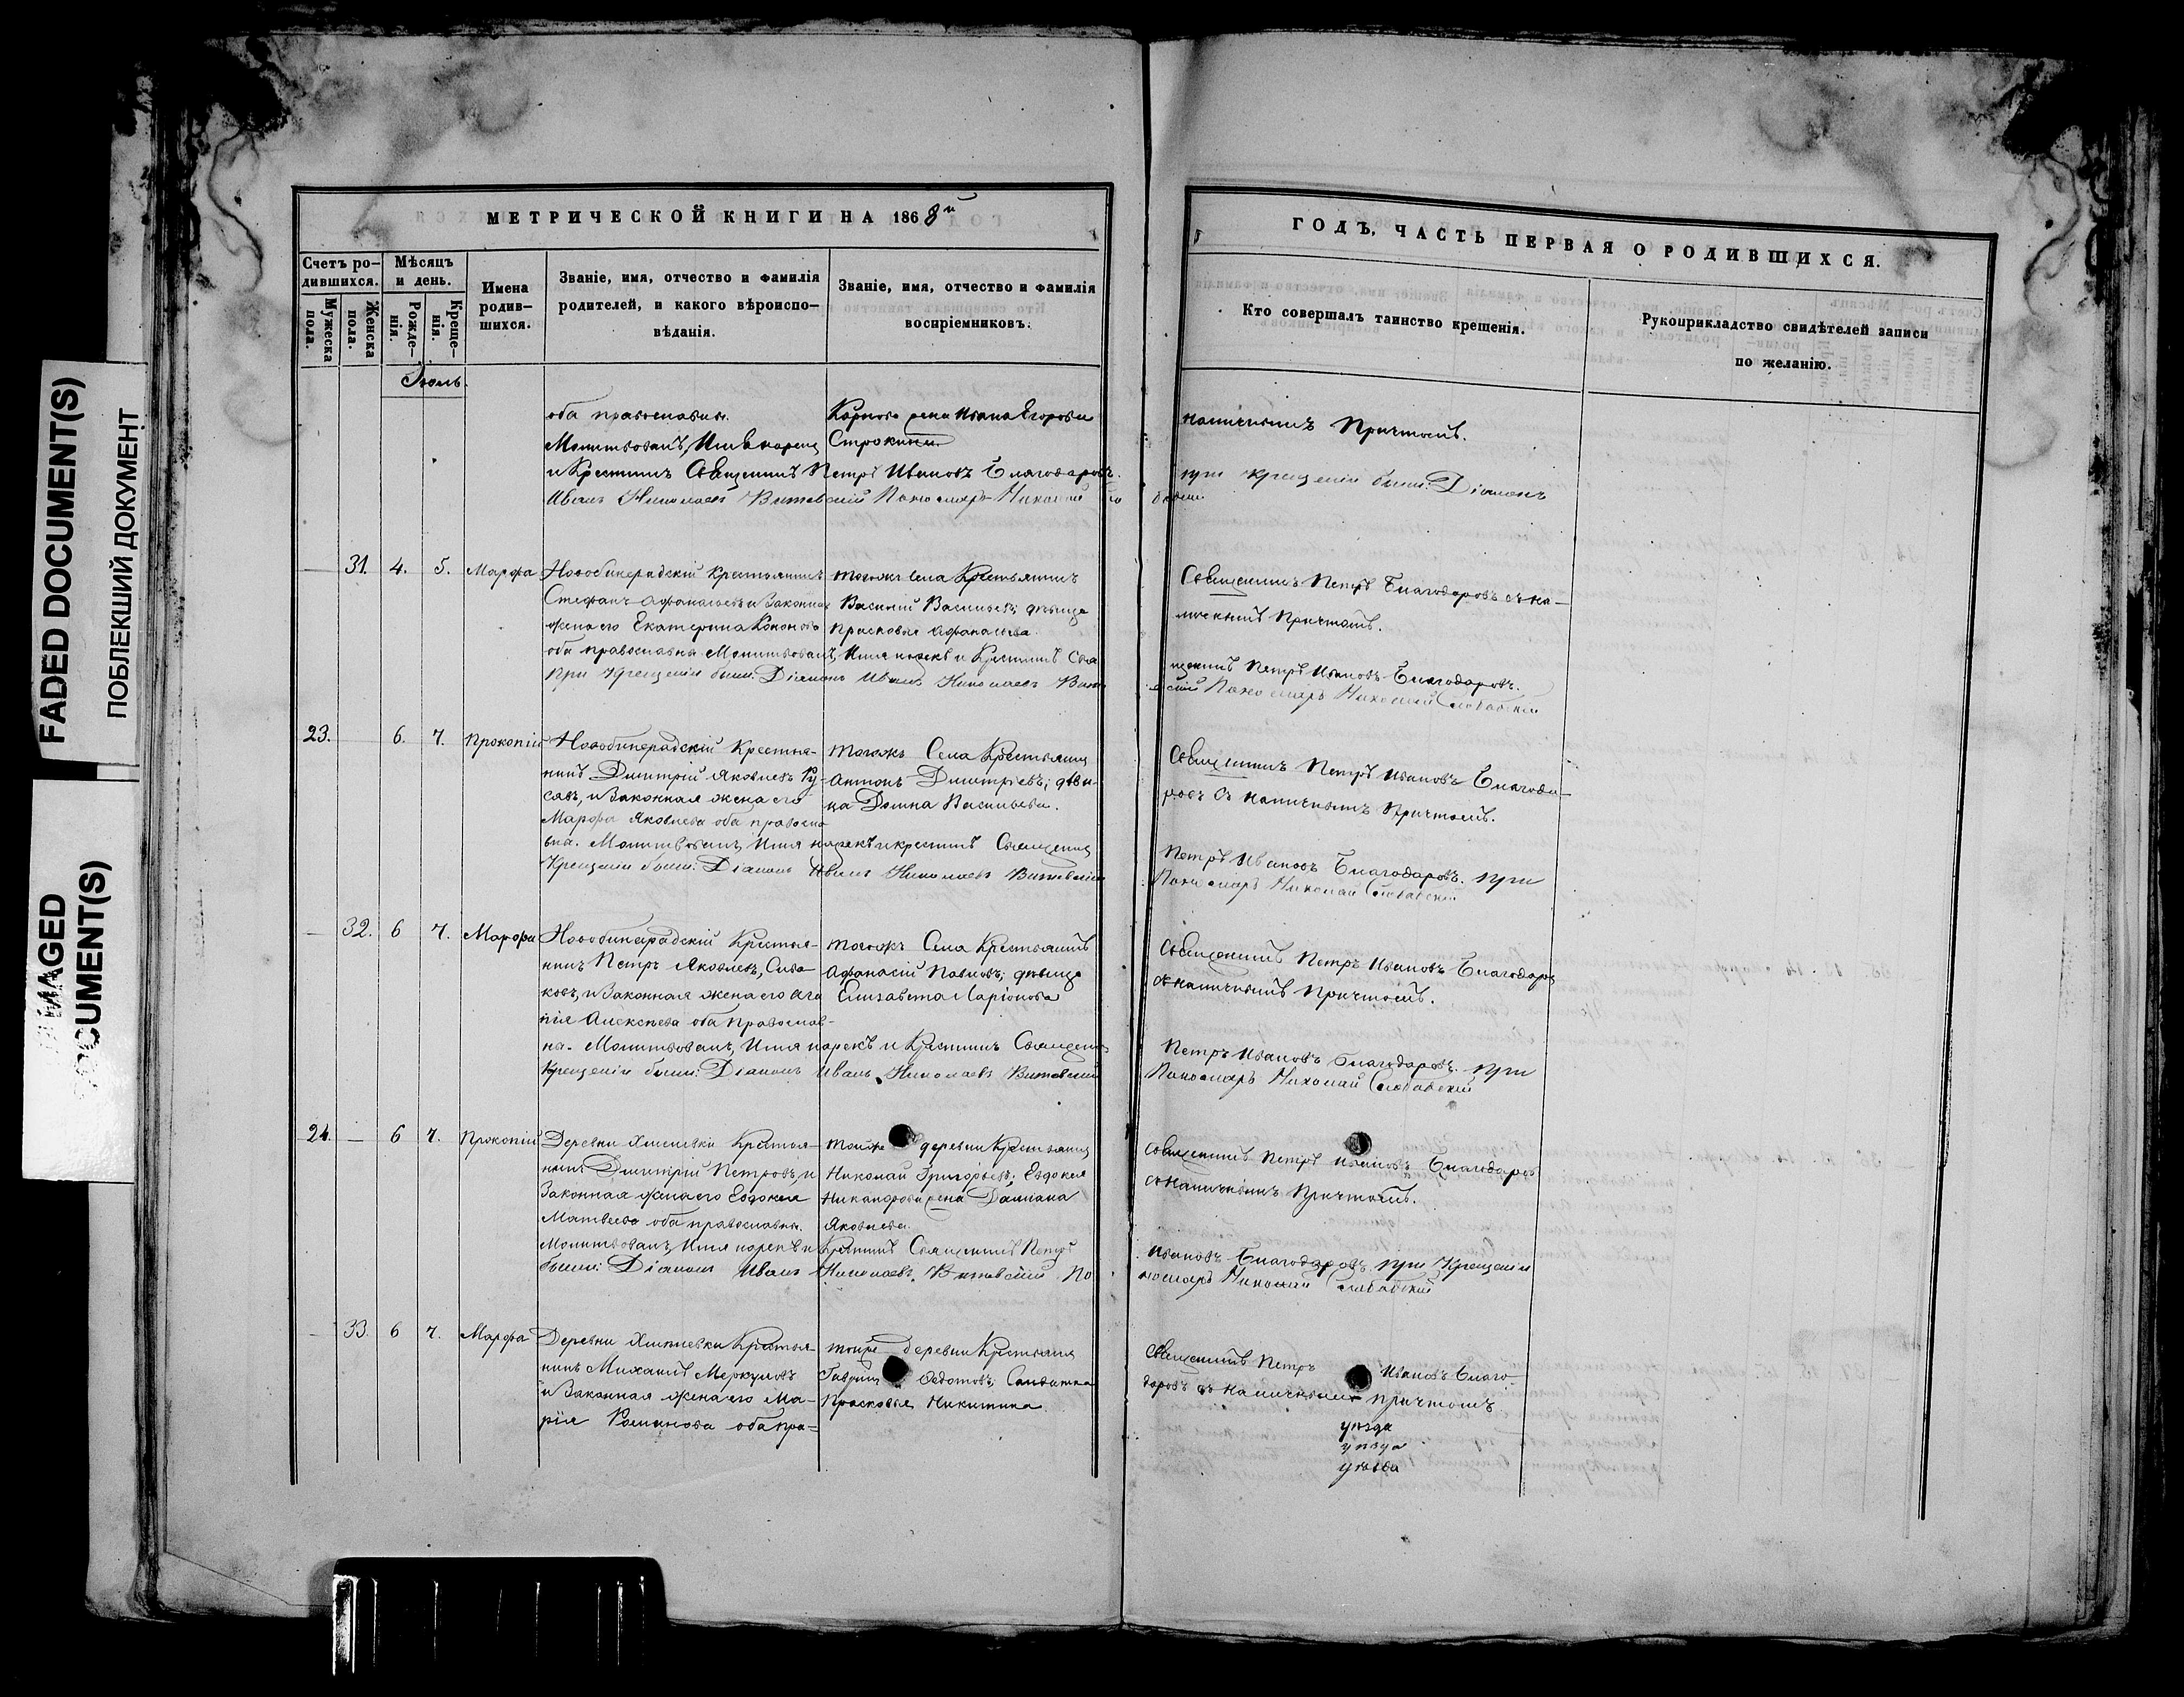 FADED DOCUMENT(S)
ПОБЛЕКШИЙ ДОКУМЕНТ
DOCUMENT(S)
МЕТРИЧЕСКОЙ КНИГИ НА 1868й
Счетъ ро-
дившихся.
Мужеска
пола.
Женска
пола.
Мѣсяцъ
и день.
Рожде-
нія.
Креще-
нія.
Имена
родив-
шихся.
Званіе, имя, отчество и фамилія
родителей, и какого вѣроиспо-
вѣданія.
Званіе, имя, отчество и фамилія
воспріемниковъ.
ГОДЪ, ЧАСТЬ ПЕРВАЯ О РОДИВШИХСЯ.
Кто совершалъ таинство крещенія.
Рукоприкладство свидѣтелей записи
по желанію.
Іюль.
оба православны.
Молитвовалъ, Имя нарекъ
и Крестилъ Священникъ Петръ Ивановъ Благодаровъ.
при крещеніи были: Діаконъ
Иванъ Николаевъ Витевскій Пономарь Николай
Жена Ивана Егорова
Строкина
наличнымъ Причтомъ.
31. 4. 5. Марфа
Новобинарадскій Крестьянинъ
Стефанъ Афанасьевъ и Законная
жена его Екатерина Кононова
оба православны Молитвовалъ, Имя нарекъ и Крестилъ Свя
щенникъ Петръ Ивановъ Благодаровъ.
При Крещеніи были: Діаконъ Иванъ Николаевъ
Пономарь Николай
тогожъ села Крестьянинъ
Василій Васильевъ; дѣвица
Прасковья Афанасьева.
Священникъ Петръ Благодаровъ съ на-
личнымъ Причтомъ.
23. 6. 7. Прокопій
Новобинарадскій Крестья-
нинъ Дмитрій Яковлевъ Ку-
савъ, и Законная жена его
Марфа Яковлева оба правосла
вна. Молитвовалъ, Имя нарекъ и крестилъ Священник
Петръ Ивановъ Благодаровъ. при
Крещеніи были: Діаконъ Иванъ Николаевъ Витевскій
Пономарь Николай
тогожъ Села Крестьянинъ
Антонъ Дмитріевъ; дѣви-
ца Домна Васильева.
Священникъ Петръ Ивановъ Благода-
ровъ съ наличнымъ Причтомъ.
32. 6 7. Марфа
Новобинарадскій Крестья-
нинъ Петръ Яковлевъ, Сива-
ковъ, и Законная жена его Ага
пія Алексѣева оба Православ-
на. Молитвовалъ, Имя нарекъ и Крестилъ Священ
Петръ Ивановъ Благодаровъ. при
Крещеніи были: Діаконъ Иванъ Николаевъ Витевскій
Пономарь Николай
тогожъ Села Крестьянинъ
Афанасій Павловъ; дѣвица
Елизавета Ларіонова
Священникъ Петръ Ивановъ Благодаровъ
съ наличнымъ Причтомъ.
24. — 6 7. Прокопій
Деревни Крестья-
нинъ Дмитрій Петровъ, и
Законная жена его Евдокея
Матвеева оба православны.
Молитвовалъ, Имя нарекъ и Крестилъ Священникъ Петръ
Ивановъ Благодаровъ при Крещеніи
были: Діаконъ Иванъ Николаевъ, Витевскій По
номарь Николай
тойже деревни Крестьянинъ
Николай Григорьевъ; Евдокея
Никандрова жена Даміана
Яковлева.
Священникъ Петръ Ивановъ Благодаровъ
съ Наличнымъ Причтомъ.
33. 6 7. Марфа
Деревни Крестья-
нинъ Михаилъ Меркуловъ
и Законная жена его Ма-
рія Романова оба пра=
тойже деревни Крестьянинъ
Гаврилъ Ѳедотовъ; Солдатка
Прасковья Никитина.
Священникъ Петръ Ивановъ Благо-
даровъ съ наличнымъ причтомъ
уѣзда
уѣзда
уѣзда